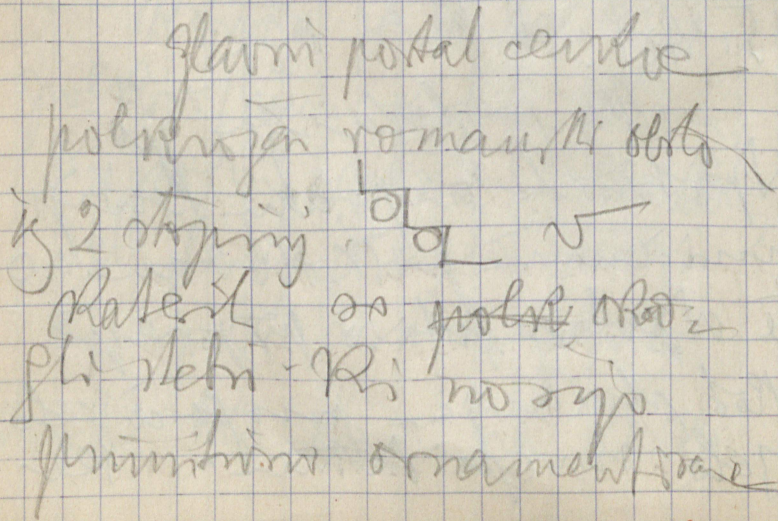 glavni portal cerkve
polkrožni romanski obok
iz 2 stopinj. v
katerih so polk okro-
gli stebri - ki nosijo
primitivno ornamentirane